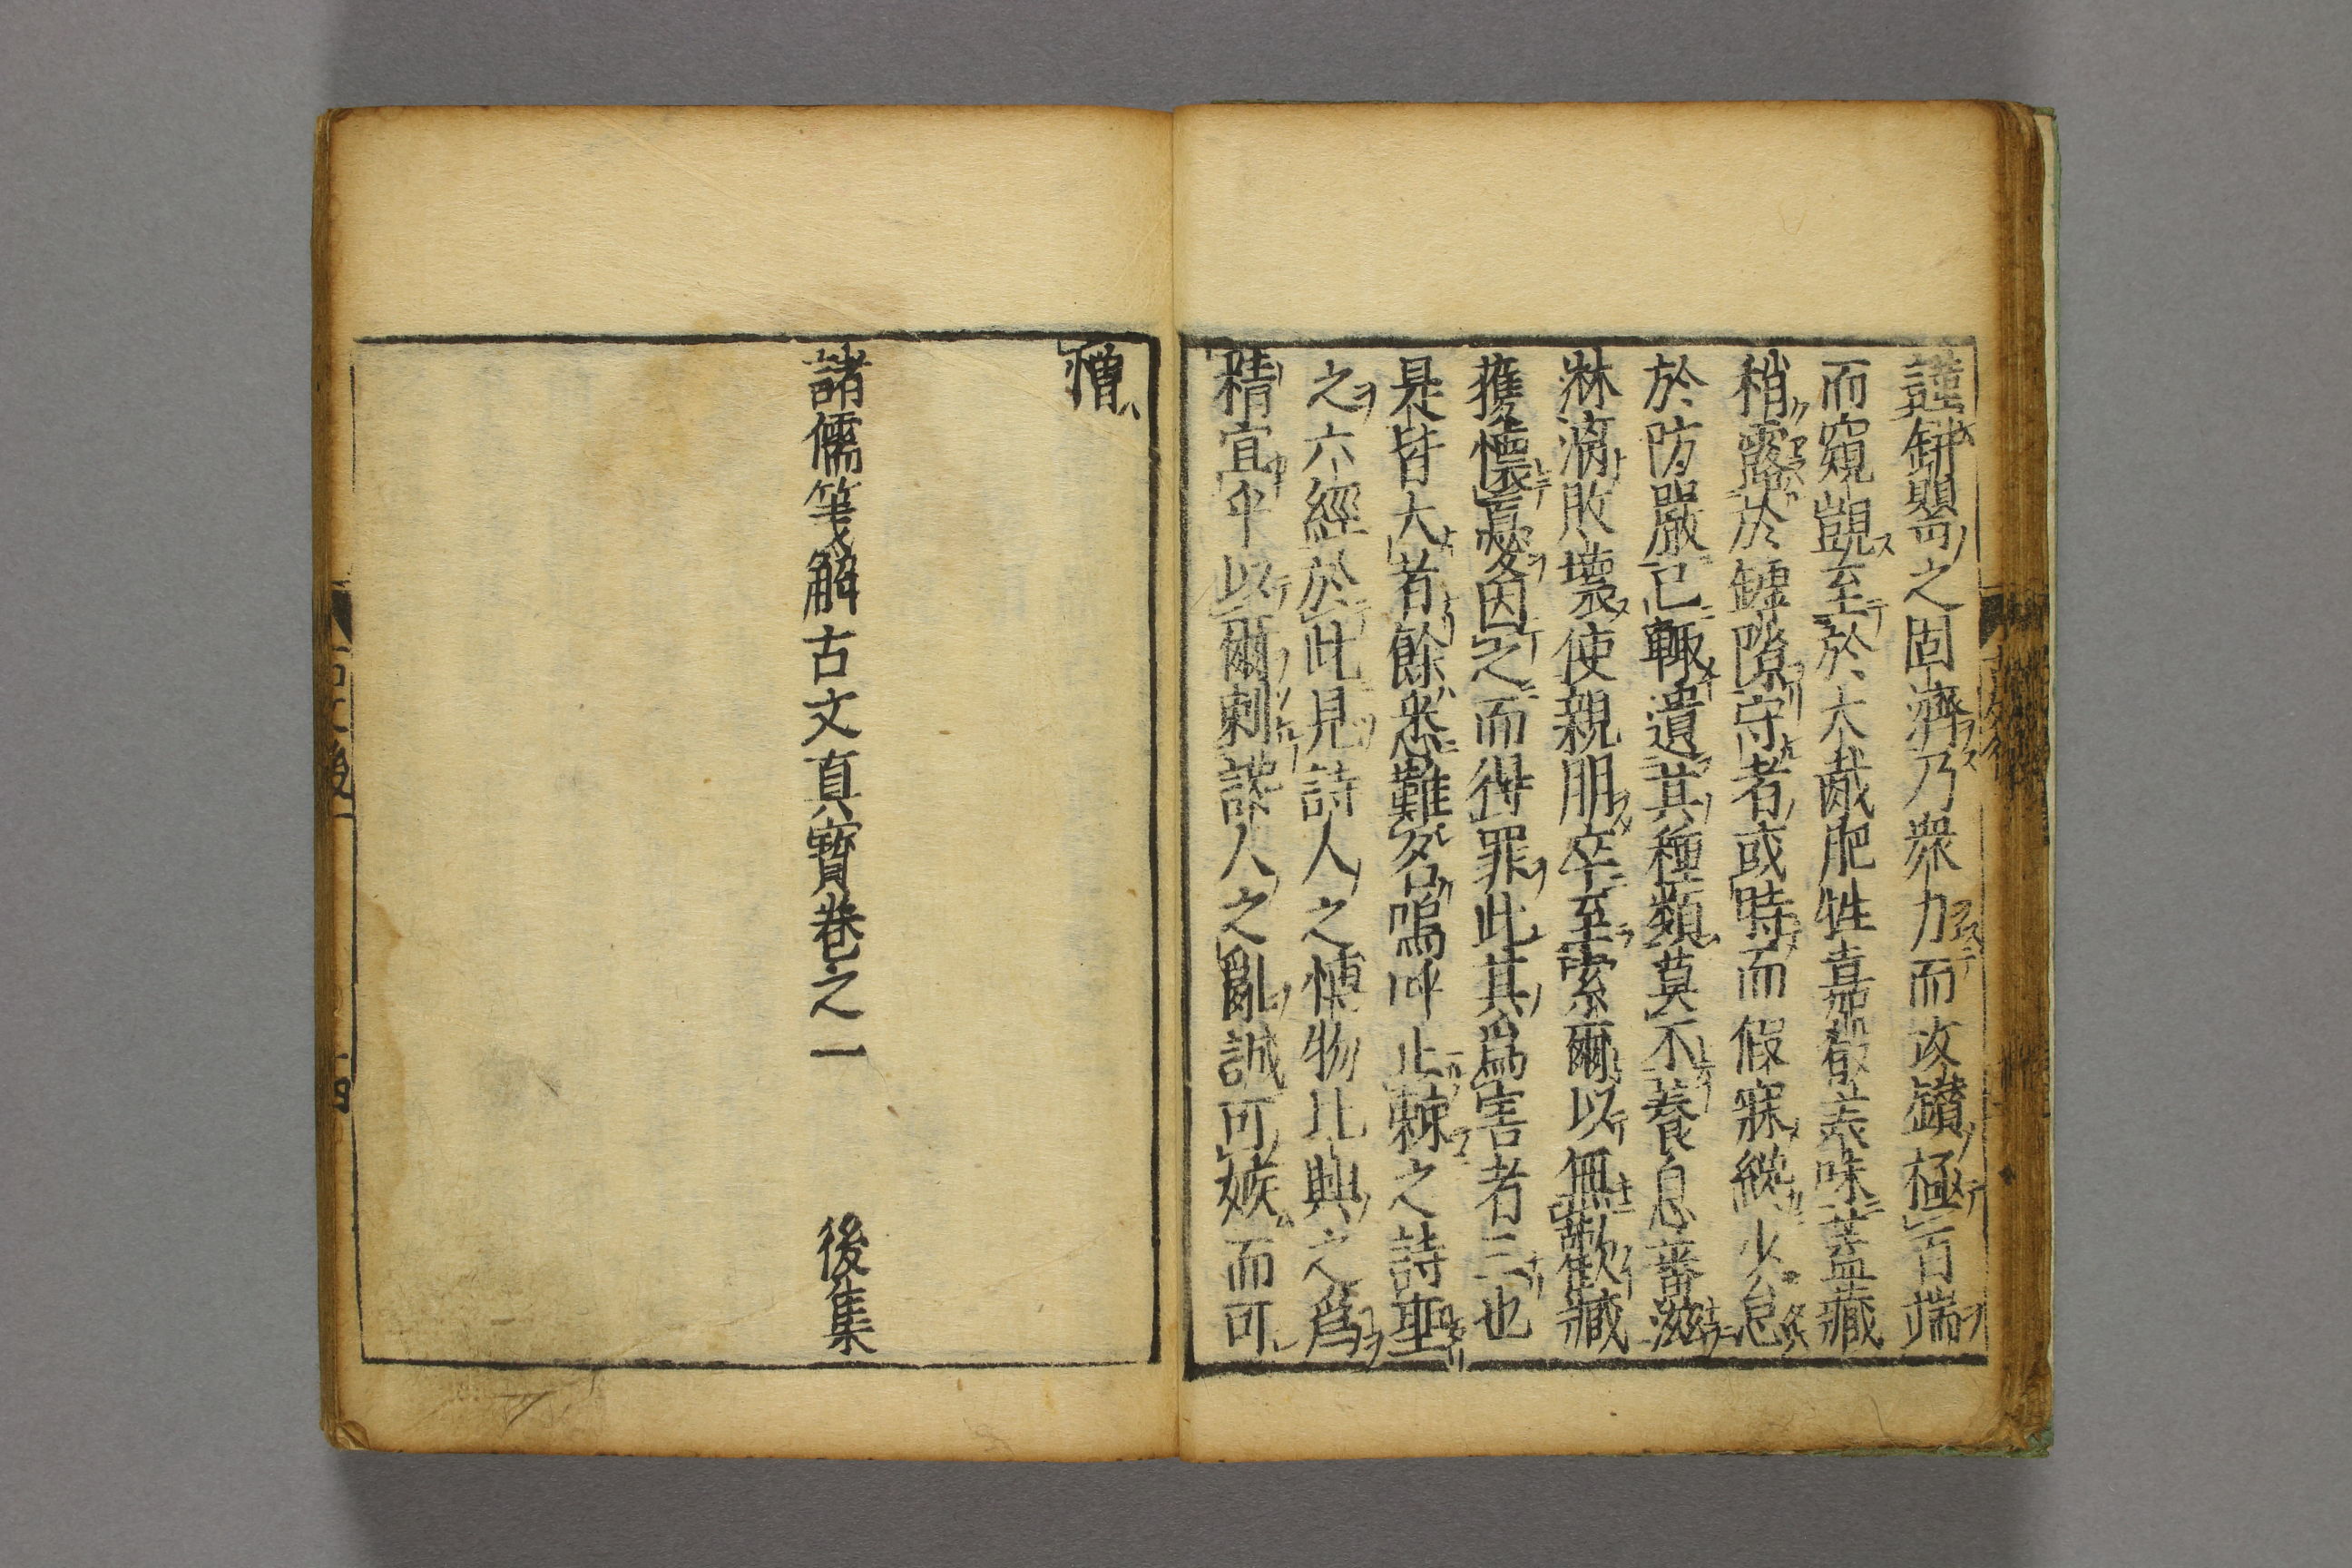 謹缾罌之固濟乃衆力而攻鑚極百端
而窺覬至於大胾肥牲嘉殽美味蓋藏
稍露於罅隙守者或時而假寐纔少怠
於防嚴已輙遺其種類莫不養息蕃滋
淋漓敗壞使親朋卒至索爾以無歡臧
獲懷憂因之而得罪此其爲害者三也
是皆大者餘悉難名嗚呼止棘之詩垂
之六經於此見詩人之愽物比興之爲
精宜乎以爾刺讒人之亂誠可嫉而可
憎
諸儒箋解古文真寳卷之一 後集